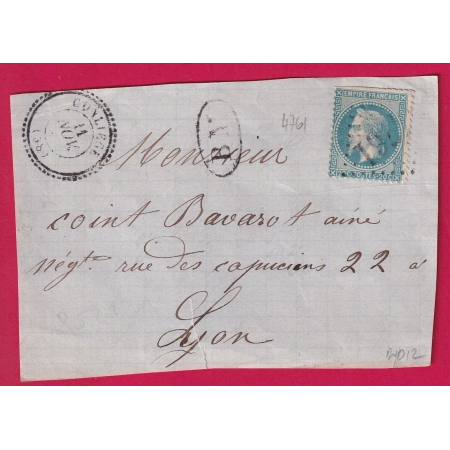 CONLIEGE
11
NOV
(38)
B
4761
EMPIRE FRANÇAIS
Monsieur
coint Bavarot ainé
négt. rue des capucins 22 à
Lyon